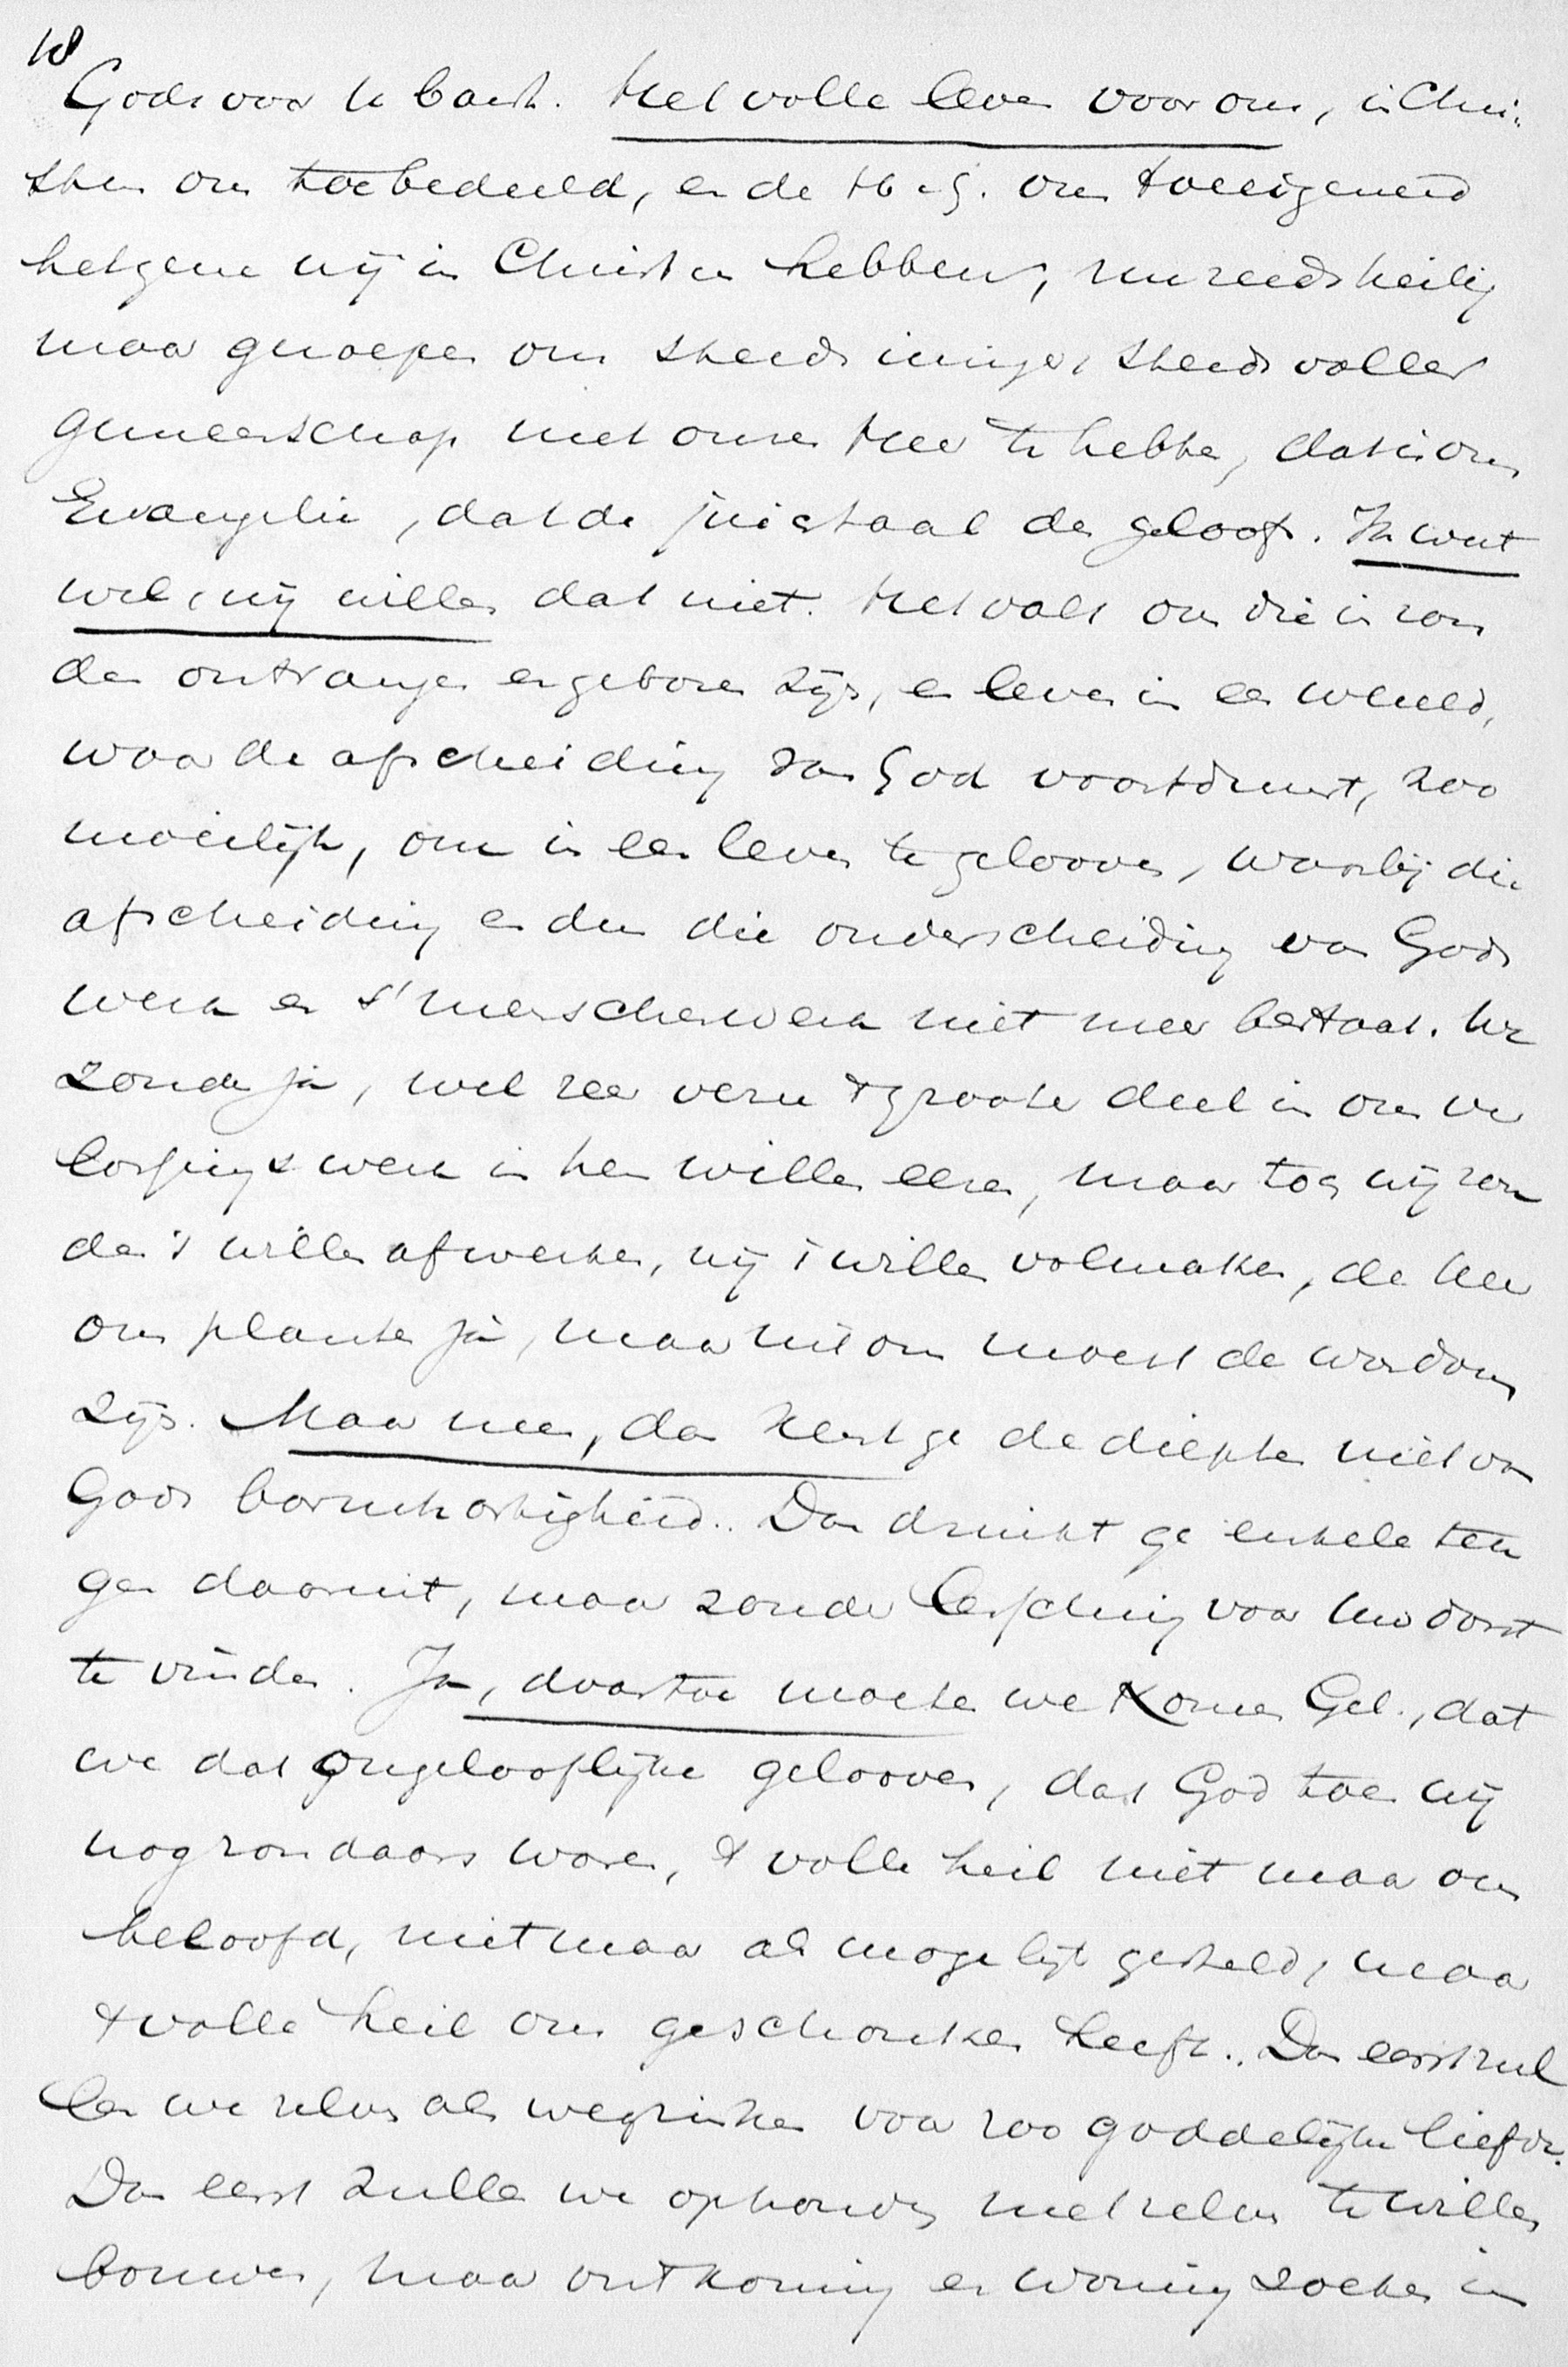 18
Gods voor te baat. Het volle leven voor ons, in Chri-
stus ons toebedeeld, en de H. G. ons toeeigenend
hetgene wij in Christus hebben, nu reeds heilig
maar geroepen om steeds inniger, steeds voller
gemeenschap met onzen Heer te hebben, dat is ons
Evangelie, dat de juichtaal des geloofs. Ik weet
wel, wij willen dat niet. Het valt ons die in zon
den ontvangen en geboren zijn, en leven in een wereld,
waar de afscheiding van God voortduurt, zoo
moeielijk, om in een leven te gelooven, waarbij die
afscheiding en dus die onderscheiding van Gods
werk en 's menschenwerk niet meer bestaat. We
zouden ja, wel zeer verre 't groote deel in ons ver
lossingswerk in hem willen eeren, maar toch wij zou
den 't willen afwerken, wij 't willen volmaken, de Heer
ons planten ja, maar uit ons moest de wasdom
zijn. Maar neen, dan kent ge de diepten niet van
Gods barmhartigheid.. Dan drinkt ge enkele teu
gen daaruit, maar zonder lessching voor uw dorst
te vinden. Ja, daartoe moeten we komen Gel., dat
we dat ongelooflijke gelooven, dat God toen wij
nog zondaars waren, 't volle heil niet maar ons
beloofd, niet maar als mogelijk gesteld, maar
't volle heil ons geschonken heeft.. Dan eerst zul
len we zelven als wegzinken voor zoo goddelijke liefde.
Dan eerst zullen we ophouden met zelven te willen
bouwen, maar ontkoming en woning zoeken in